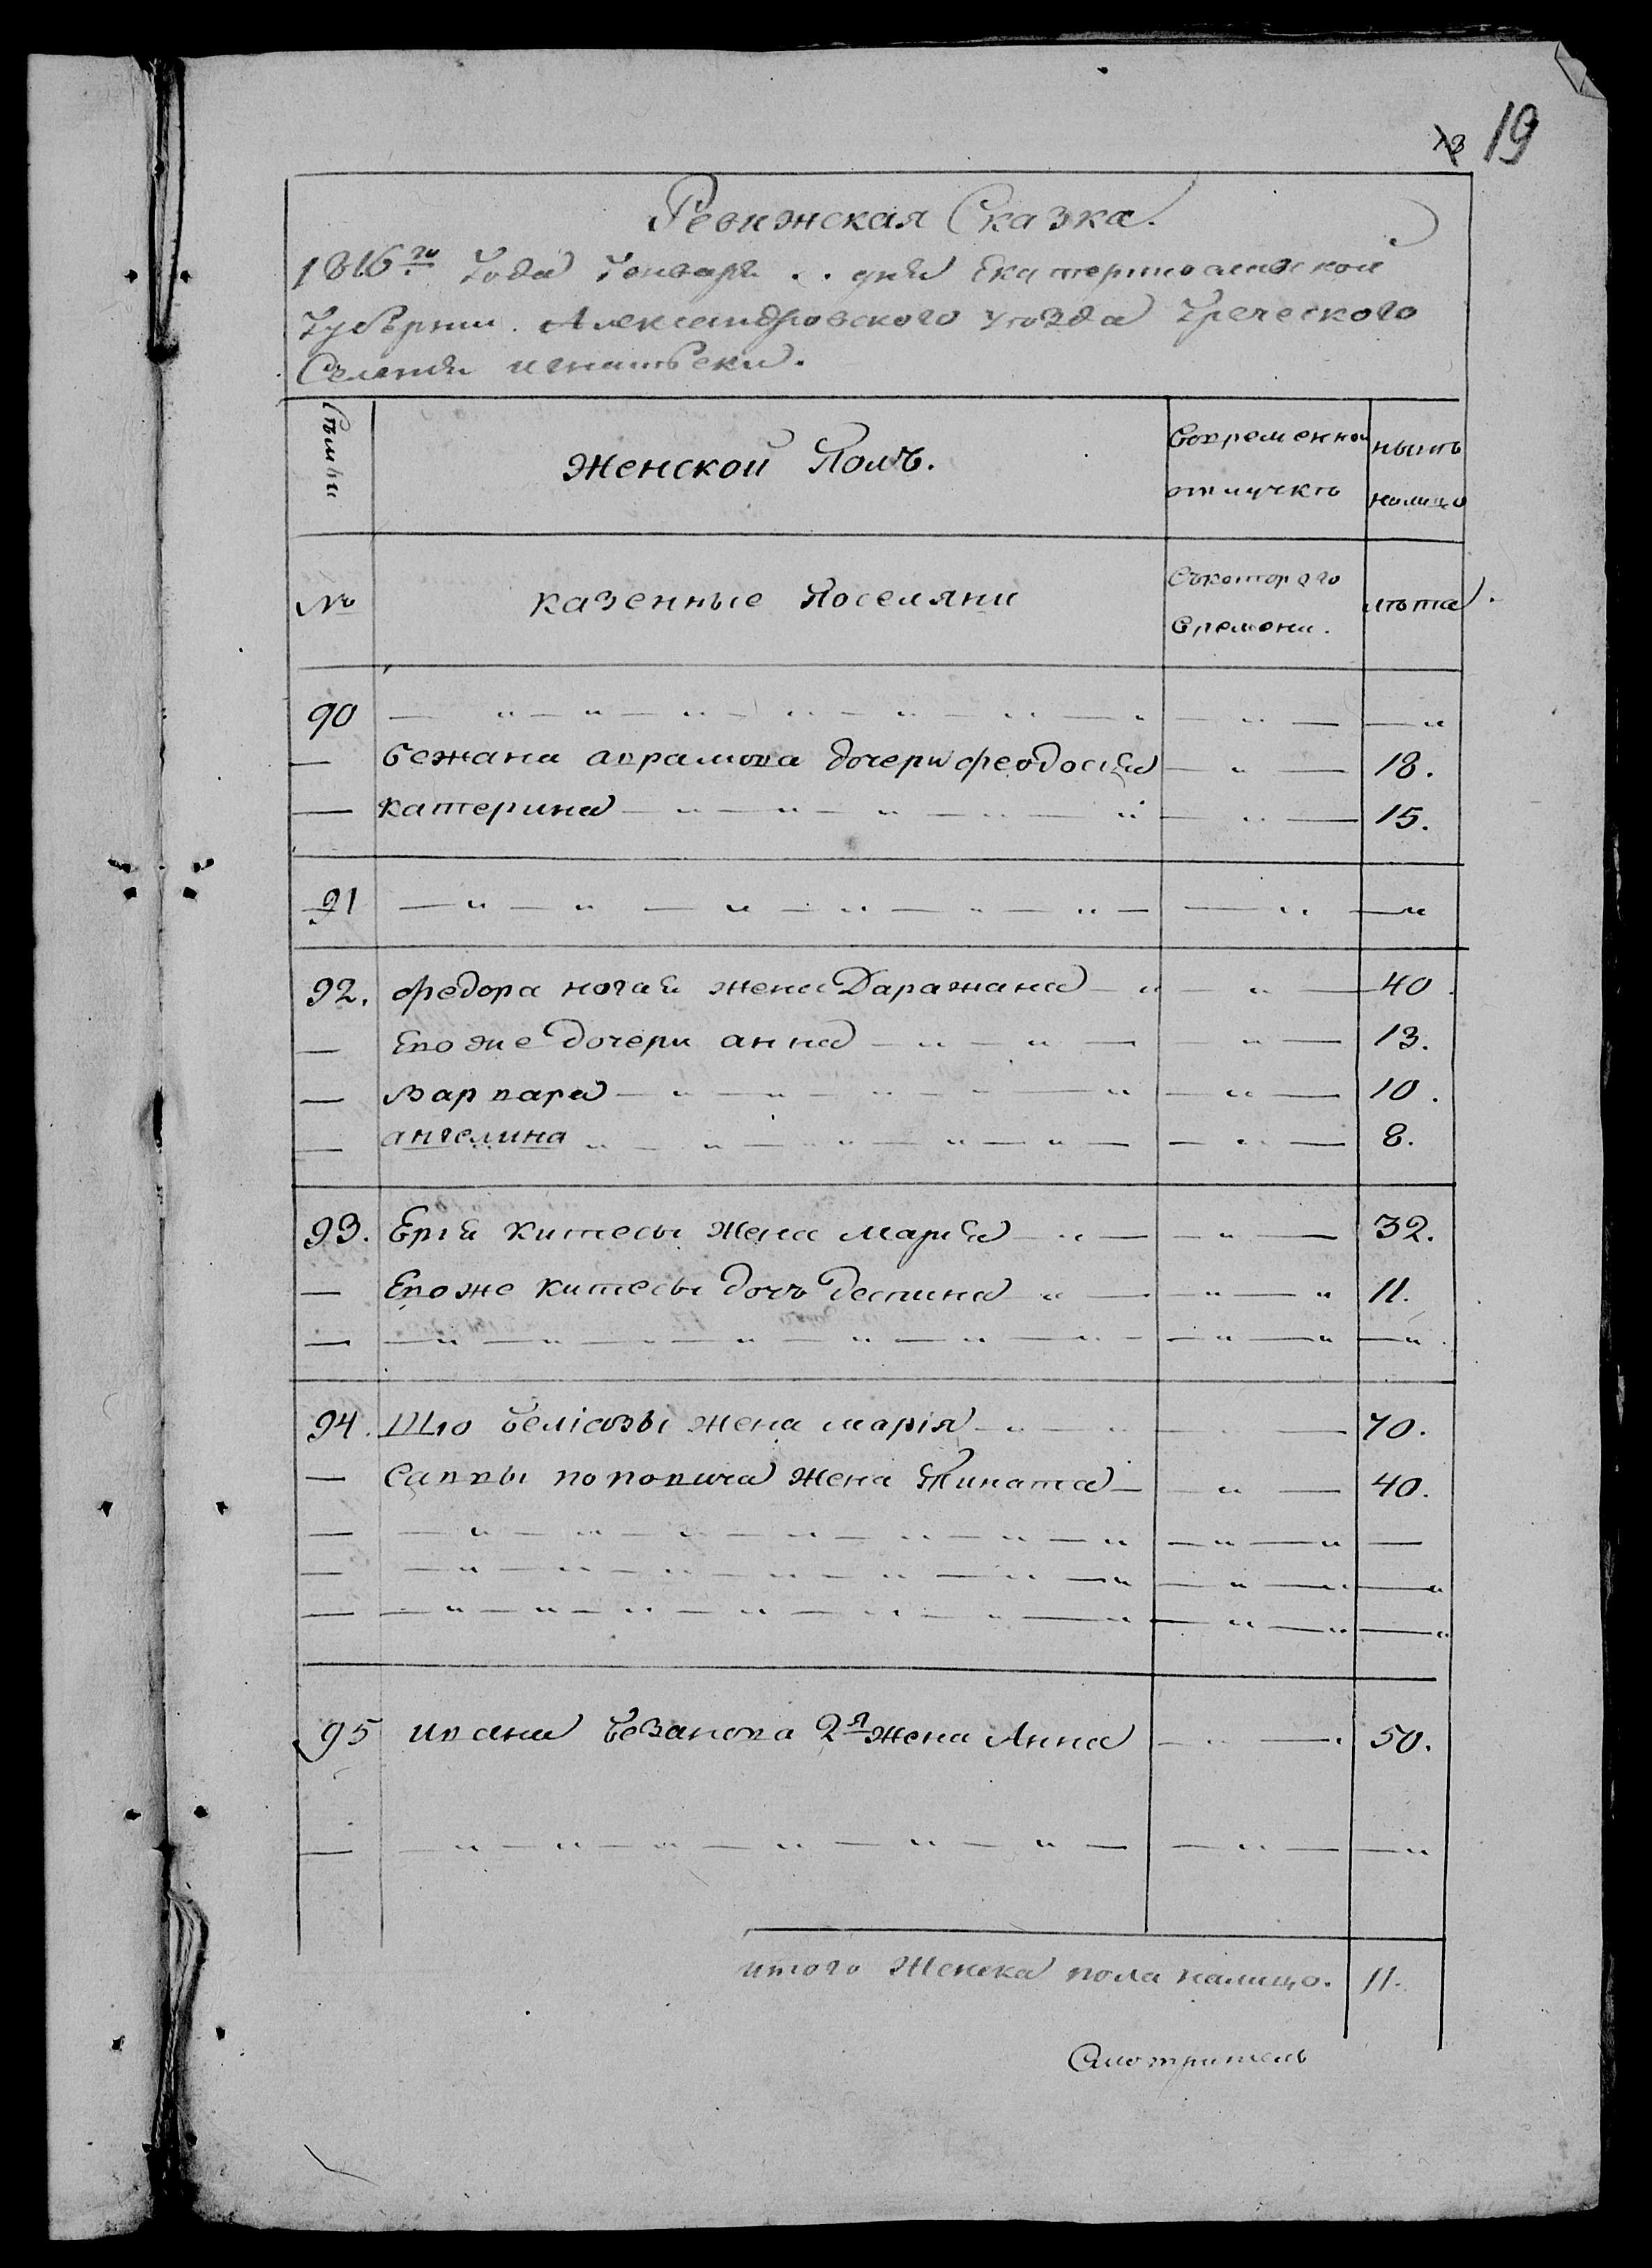 19
Ревижская Сказка.
1816го Года Генваря дня Екатеринославской
Губернии Александровского уезда Греческого
Селения игнатьеки.
Семьи
Женской Полъ.
Вовременной отлучкѣ
нынѣ налицо
№
казенные Поселяни
Съкоторого Времени.
лѣта
90 — " — " — " — " — " — "
— бежана аврамова дочери феодосия — " — 18.
— катерина — " — " — 15.
91 — " — " — " — " — "
92. федора ногай жена Даражана — " — 40.
— Его же дочери анна — " — 13.
— Варвара — " — 10.
— ангелина — " — 8.
93. Ергй китесы жена Мария — " — 32.
— Егоже китесы дочь деспина — " — 11.
— — " — " — " — "
94. Шю беліовы жена марія — " — 70.
— Саввы поповича жена Кината — " — 40.
— — " — " — " — "
— — " — " — " — "
— — " — " — " — "
95 ивана безанова 2я жена Анна — " — 50.
— — " — " — " — "
итого Женска пола налицо. 11.
Смотритель